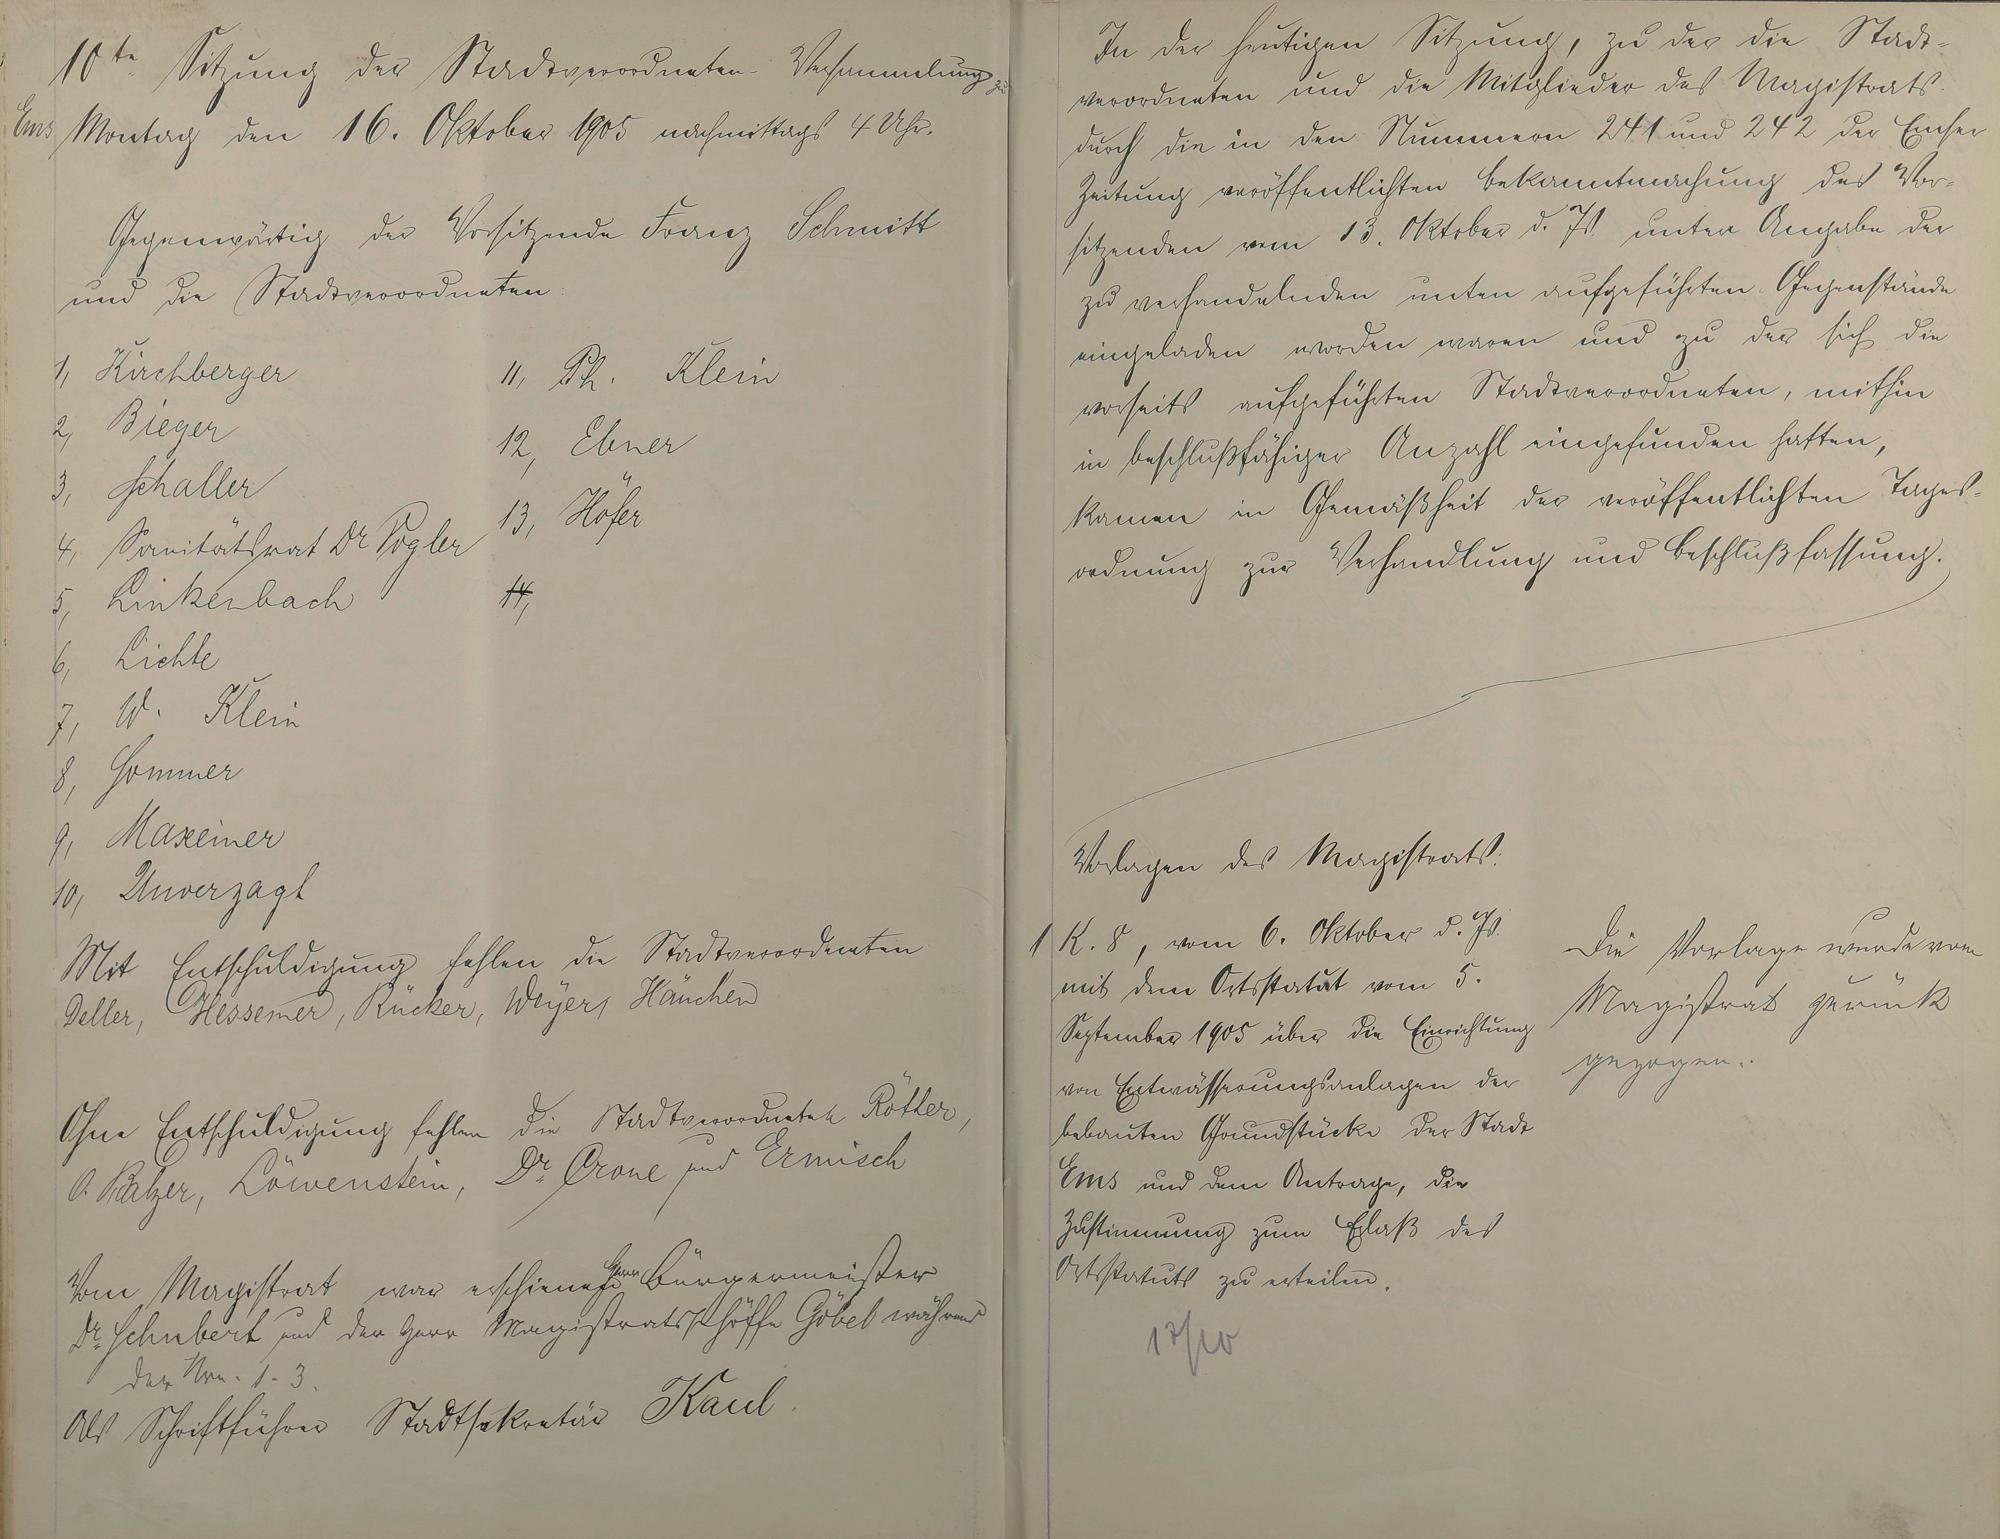 10te Sitzung der Stadtverordneten-Versammlung zu
Ems Montag den 16. Oktober 1905 nachmittags 4 Uhr.
Gegenwärtig der Vorsitzende Franz Schmitt
und die Stadtverordneten:
1, Kirchberger
2, Bieger
3, Schaller
4, Sanitätsrat Dr Vogler
5, Linkenbach
6, Lichte
7, W. Klein
8, Sommer
9, Maxeiner
10, Unverzagt
11, Ph. Klein
12, Ebner
13, Höfer
14,
Mit Entschuldigung fehlen die Stadtverordneten
Deller, Hessemer, Rücker, Weyer, Häuchen
Ohne Entschuldigung fehlen die Stadtverordneten Rötter,
O. Balzer, Löwenstein, Dr. Crone und Ermisch
Vom Magistrat war erschienen Herr Bürgermeister
Dr. Schubert und der Herr Magistratsschöffe Göbel während
der Nrn. 1-3.
Als Schriftführer Stadtsekretär Kaul.
In der heutigen Sitzung, zu der die Stadt-
verordneten und die Mitglieder des Magistrats
durch die in den Nummern 241 und 242 der Emser
Zeitung veröffentlichten Bekanntmachung des Vor-
sitzenden vom 13. Oktober d. Js. unter Angabe der
zu verhandelnden unten aufgeführten Gegenstände
eingeladen worden waren und zu der sich die
vorseits aufgeführten Stadtverordneten, mithin
in beschlußfähiger Anzahl eingefunden hatten,
kamen in Gemäßheit der veröffentlichten Tages-
ordnung zur Verhandlung und Beschlußfassung.
Vorlagen des Magistrats:
1 K. 8, vom 6. Oktober d. Js.
mit dem Ortsstatut vom 5.
September 1905 über die Einrichtung
von Entwässerungsanlagen der
bebauten Grundstücke der Stadt
Ems und dem Antrage, die
Zustimmung zum Erlaß des
Ortsstatuts zu erteilen.
Die Vorlage wurde vom
Magistrat zurück
gezogen.
17/10